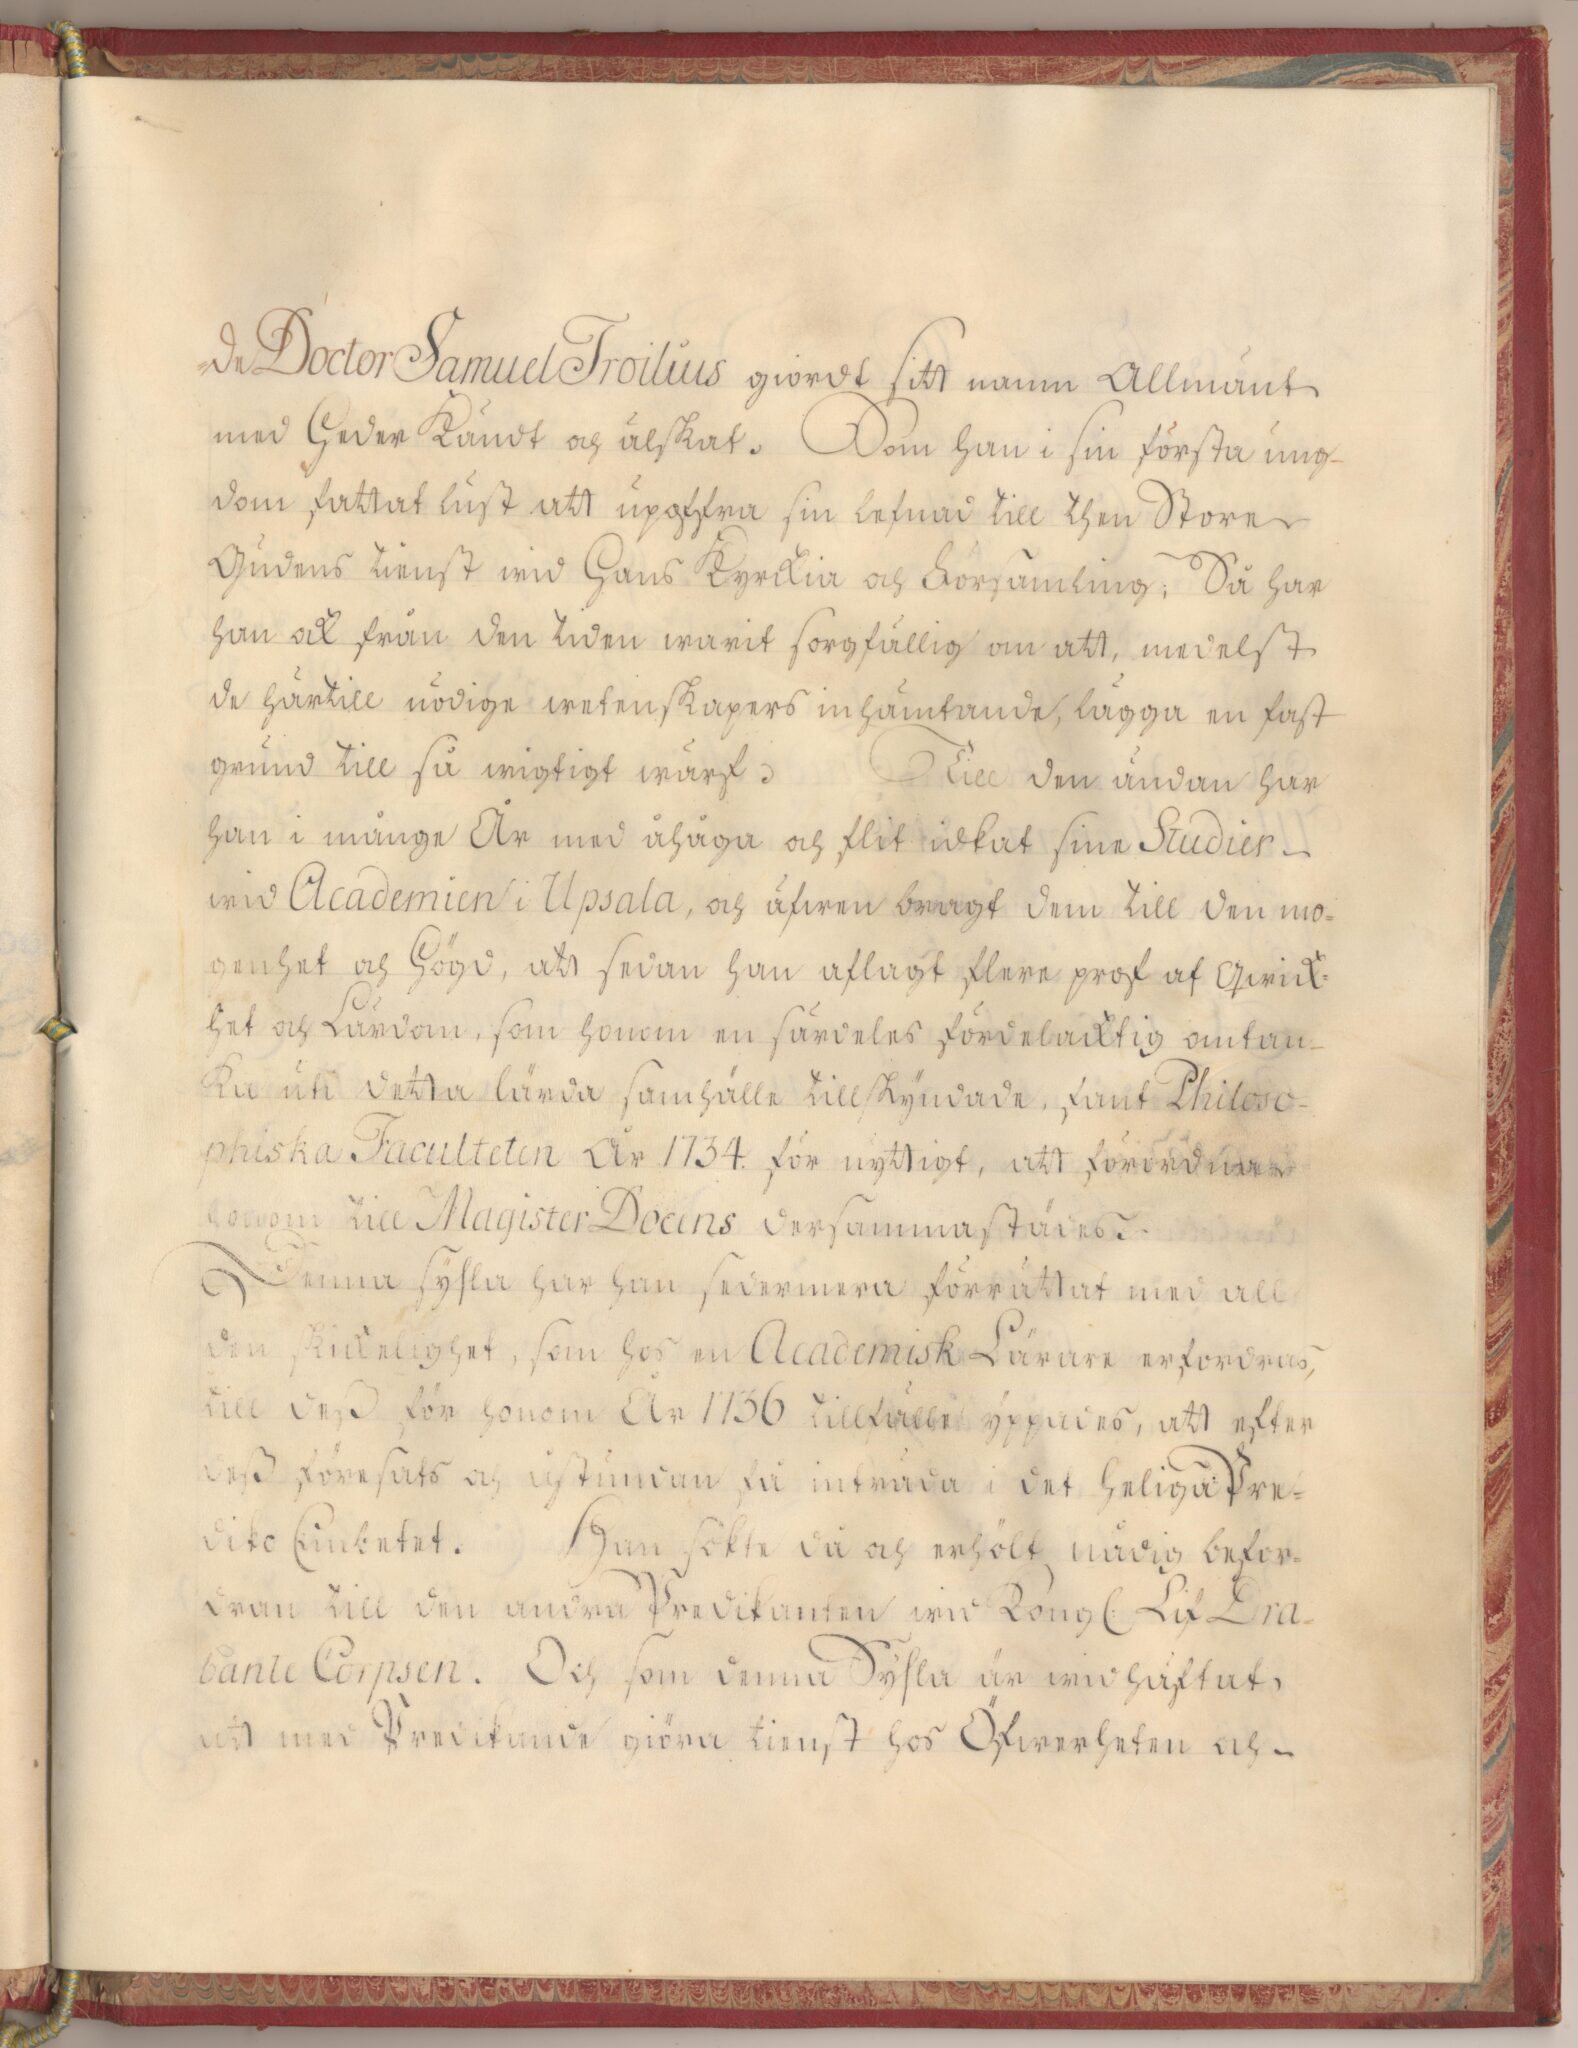 de Doctor Samuel Troilius giordt sitt namn Allmänt
med Heder Kändt och älskat. Som han i sin första ung-
dom fattat lust att upoffra sin lefnad till then Store
Gudens tienst wid Hans Kyrckia och Församling; Så har
han ock från den tiden warit sorgfällig om att, medelst
de härtill nödige wetenskapers inhämtande, lägga en fast
grund till så wigtigt wärf. Till den ändan har
han i månge År med åhåga och flit idkat sine Studier
wid Academien i Upsala, och äfwen bragt dem till den mo-
genhet och Högd, att sedan han aflagt flere prof af Qwick-
het och Lärdom, som honom en särdeles fördelacktig omtan-
ka uti detta lärda samhälle tillskyndade, fant Philoso-
phiska Faculteten År 1734. för nyttigt, att förordna
honom till Magister Docens dersammastädes.
Denna syßla har han sedermera förrättat med all
den skickelighet, som hos en Academisk Lärare erfordras,
till deß för honom År 1736 tillfälle yppades, att efter
deß föresats och åstundan få inträda i det heliga Pre-
diko Embetet. Han sökte då och erhölt nådig befor-
dran till den andra Predikanten wid Kongl. Lif Dra-
bante Corpsen. Och som denna Syßla är widhäftat,
att med Predikande giöra tienst hos Öfwerheten och